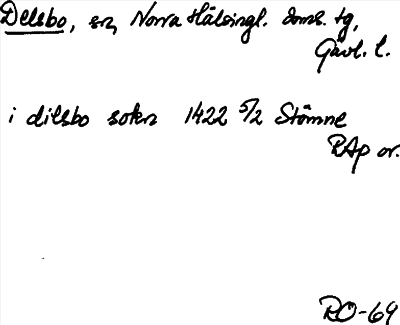 Delsbo, sn, Norra Hälsingl. doms. tg,
Gävl. l.
i dilsbo sokn 1422 5/2 Stömne
RAp or.
RO-69